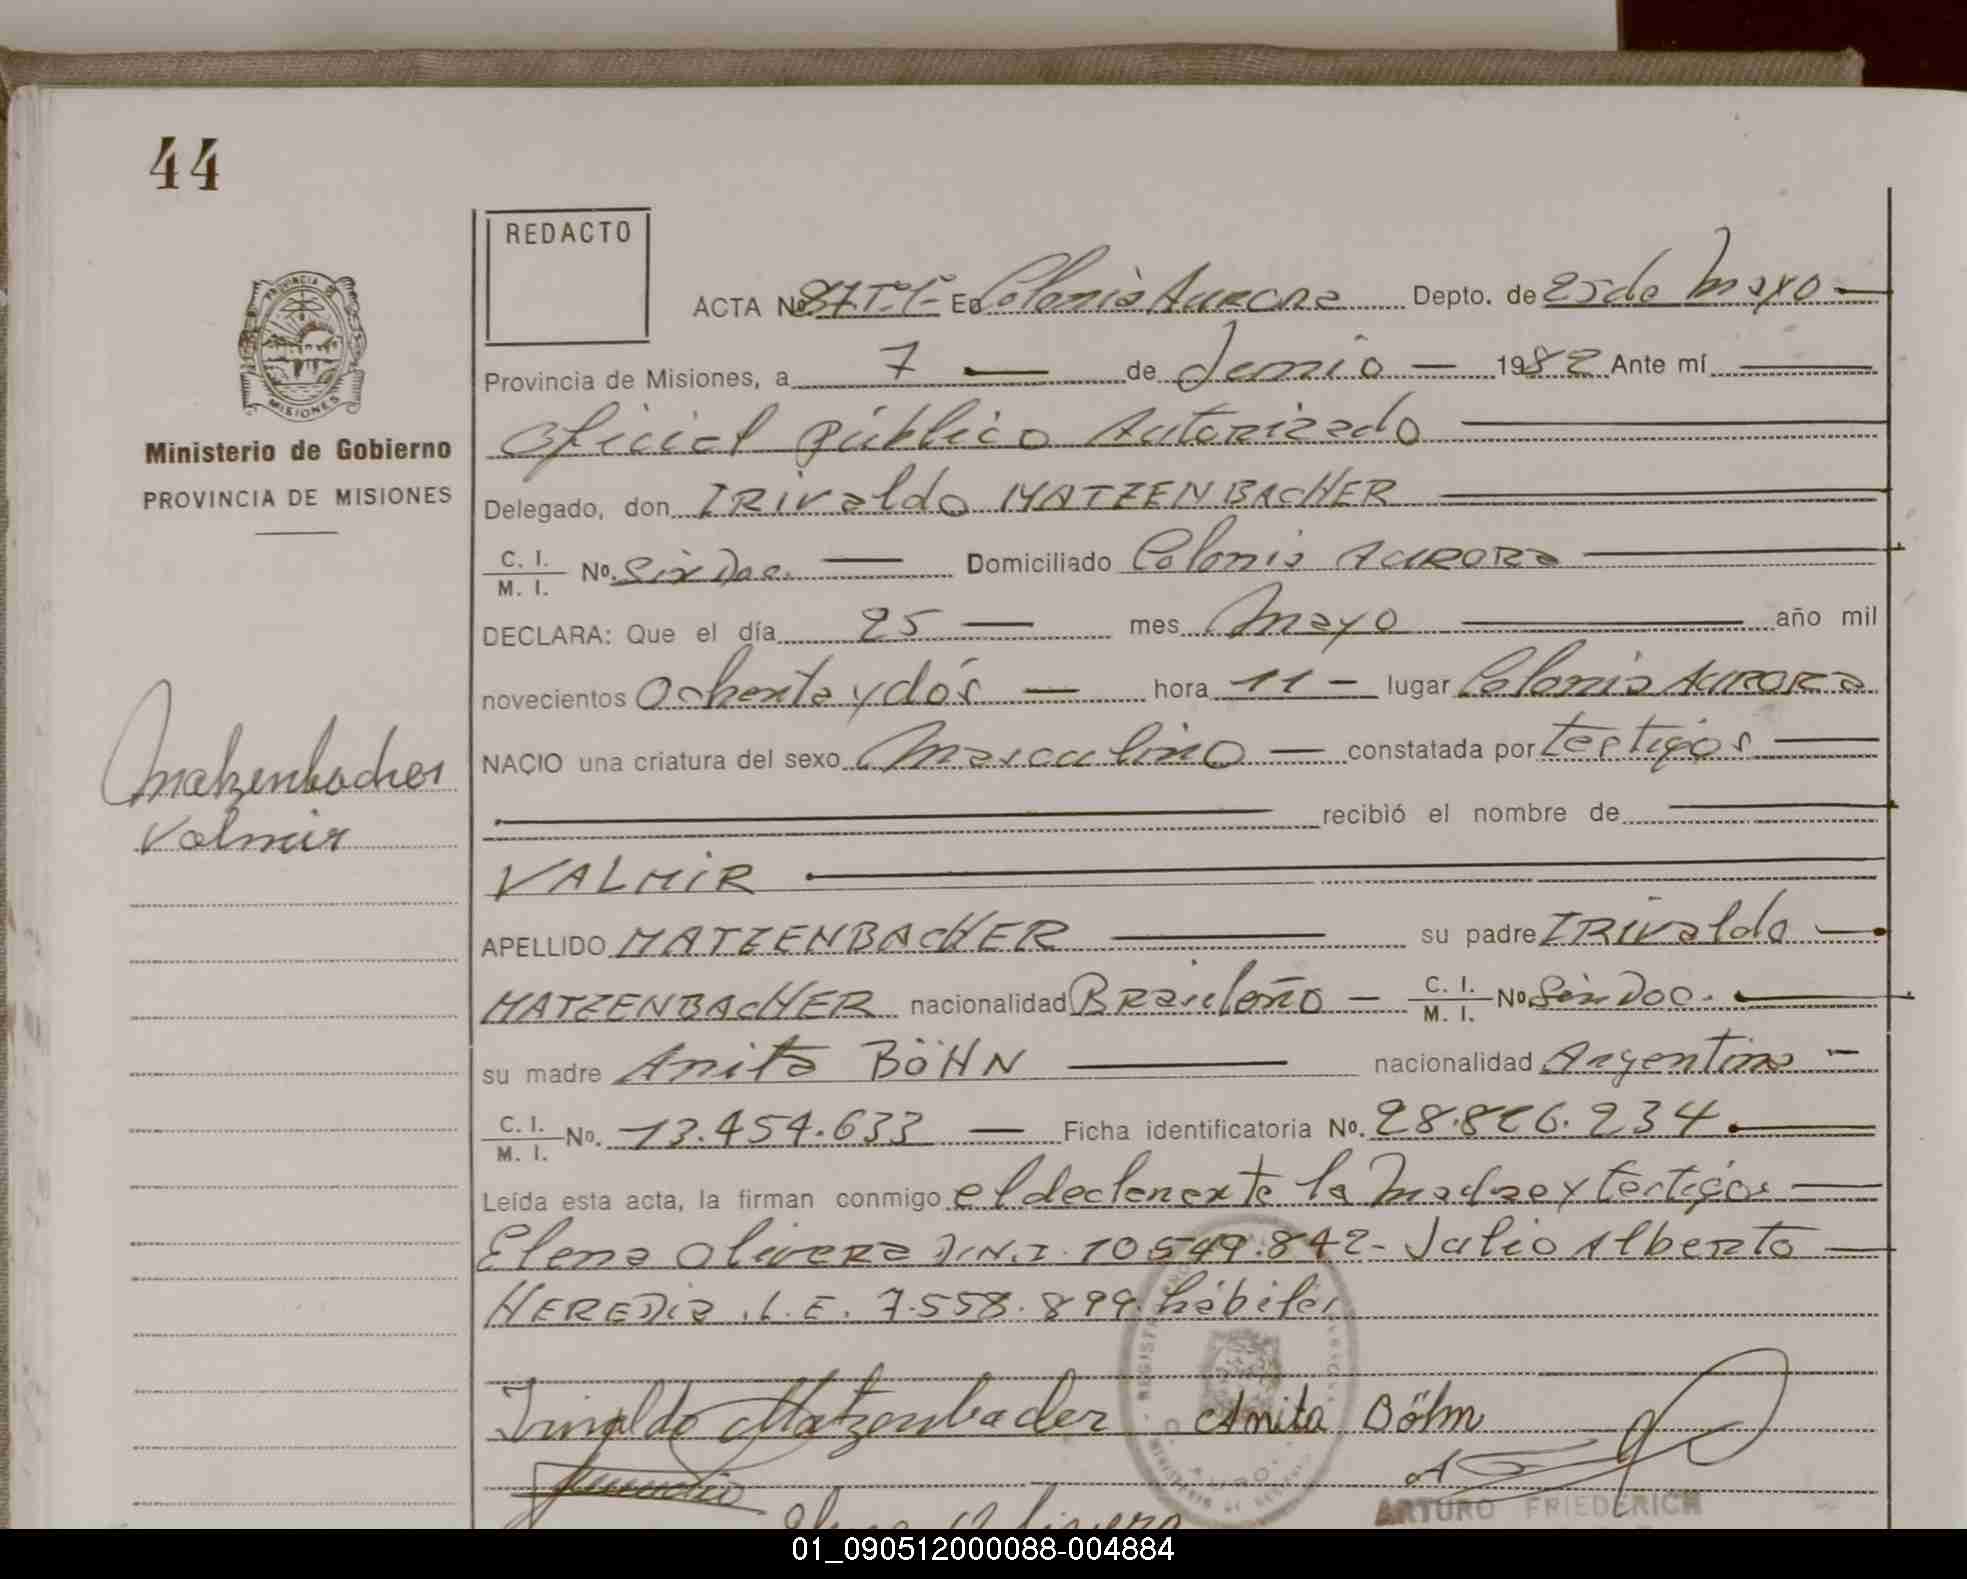 44
REDACTO
ACTA Nº 87 Tº 1º En Colonia Aurora Depto. de 25 de Mayo
Provincia de Misiones, a 7 de Junio 1982 Ante mí
Oficial Público Autorizado
Delegado, don IRIValdo MATZENBACHER
C. I.
M. I. Nº. Sin Doc. Domiciliado Colonia AURORA
DECLARA: Que el día 25 mes Mayo año mil
novecientos Ochenta y dós hora 11 - lugar Colonia AURORA
NACIO una criatura del sexo Masculino constatada por testigos
recibió el nombre de
VALMIR
APELLIDO MATZENBACHER su padre IRIValdo
MATZENBACHER nacionalidad Brasileño C. I.
M. I. Nº Sin Doc.
su madre Anita BÖHN nacionalidad Argentina
C. I.
M. I. Nº. 13.454.633 Ficha identificatoria Nº. 28.826.234
Leída esta acta, la firman conmigo el declarante la Madre y testigos
Elena Olivera D.N.I. 10.549.842- Julio Alberto
HEREDIA L.E. 7.558.899. hábiles
Irivaldo Matzenbacher Anita Böhm
ARTURO FRIEDERICH
PROVINCIA DE
MISIONES
Ministerio de Gobierno
PROVINCIA DE MISIONES
Matzenbacher
Valmir
01_090512000088-004884